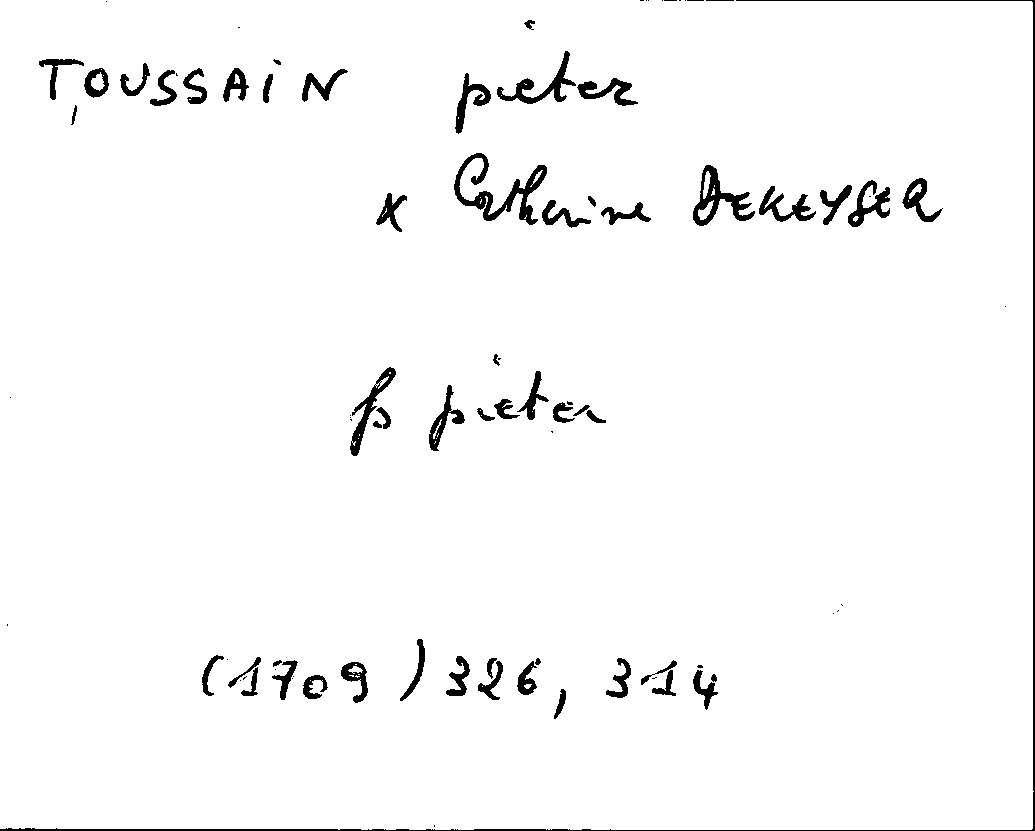 TOUSSAIN pieter
x Catherine DEKEYSER
fs pieter
(1709) 326, 314